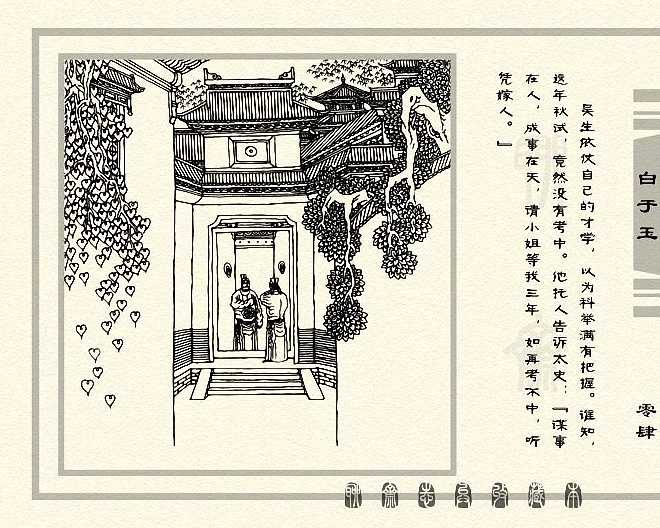 白于玉
零肆
吴生依仗自己的才学，以为科举满有把握。谁知，
这年秋试，竟然没有考中。他托人告诉太史：『谋事
在人，成事在天，请小姐等我三年，如再考不中，听
凭嫁人。』
聊齋志異藏本